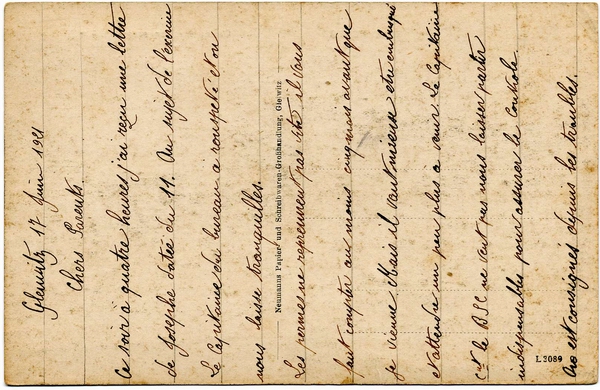 Gleiwitz 17 Juin 1921
Chers Parents.
Ce soir à quatre heures j'ai reçu une lettre
de Josephe datée du 11. Au sujet de l'exercice
Le Capitaine du bureau a rouspeté et on
nous laisse tranquilles.
Les permes ne reprennent pas vite il vous
faut compter au moins cinq mois avant que
je vienne. Mais il vaut mieux être embusqué
et attendre un peu plus à venir. Le Capitaine
et le BSC ne veut pas nous laisser partir
indispensables pour assurer le contrôle
est consignés depuis les troubles.
Neumanns Papier- und Schreibwaren-Großhandlung, Gleiwitz
L 3089